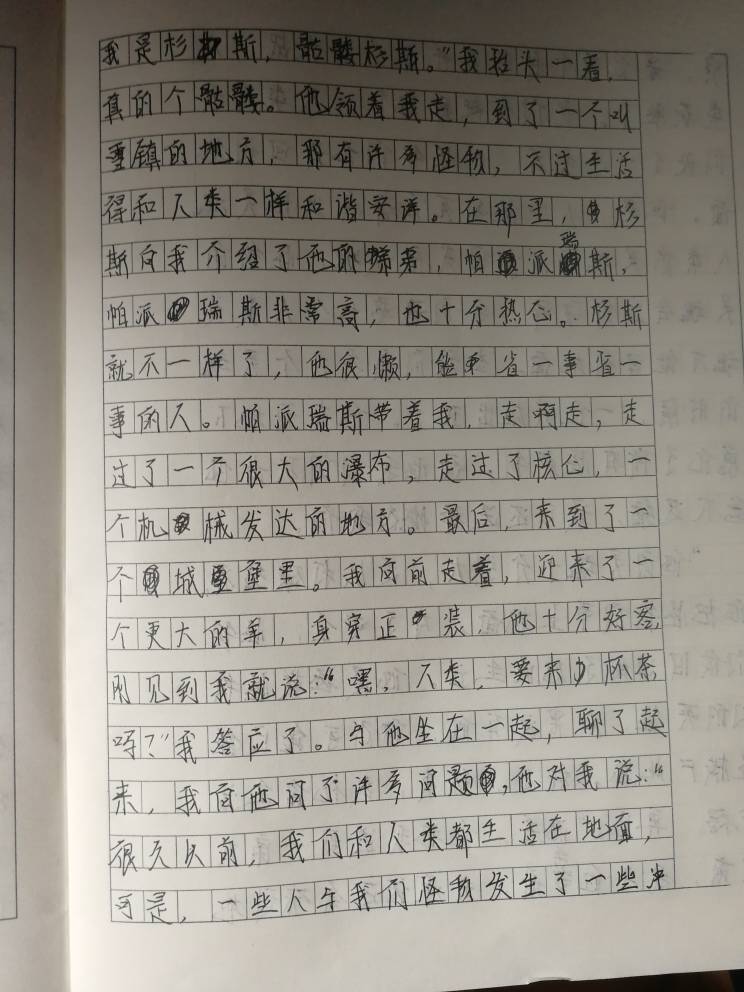 我是杉斯，骷髅杉斯。"我抬头一看，
真的个骷髅。他领着我走，到了一个叫
雪镇的地方，那有许多怪物，不过生活
得和人类一样和谐安详。在那里，杉
斯向我介绍了他的弟弟，帕派瑞斯，
帕派瑞斯非常高，也十分热心。杉斯
就不一样了，他很懒，能省一事省一
事的人。帕派瑞斯带着我，走啊走，走
过了一个很大的瀑布，走过了核心，一
个机械发达的地方。最后，来到了一
个城堡里。我向前走着，迎来了一
个更大的羊，身穿正装，他十分好客，
刚见到我就说："嘿，人类，要来杯茶
吗？"我答应了。与他坐在一起，聊了起
来，我向他问了许多问题，他对我说："
很久以前，我们和人类都生活在地面，
可是，一些人与我们怪物发生了一些冲